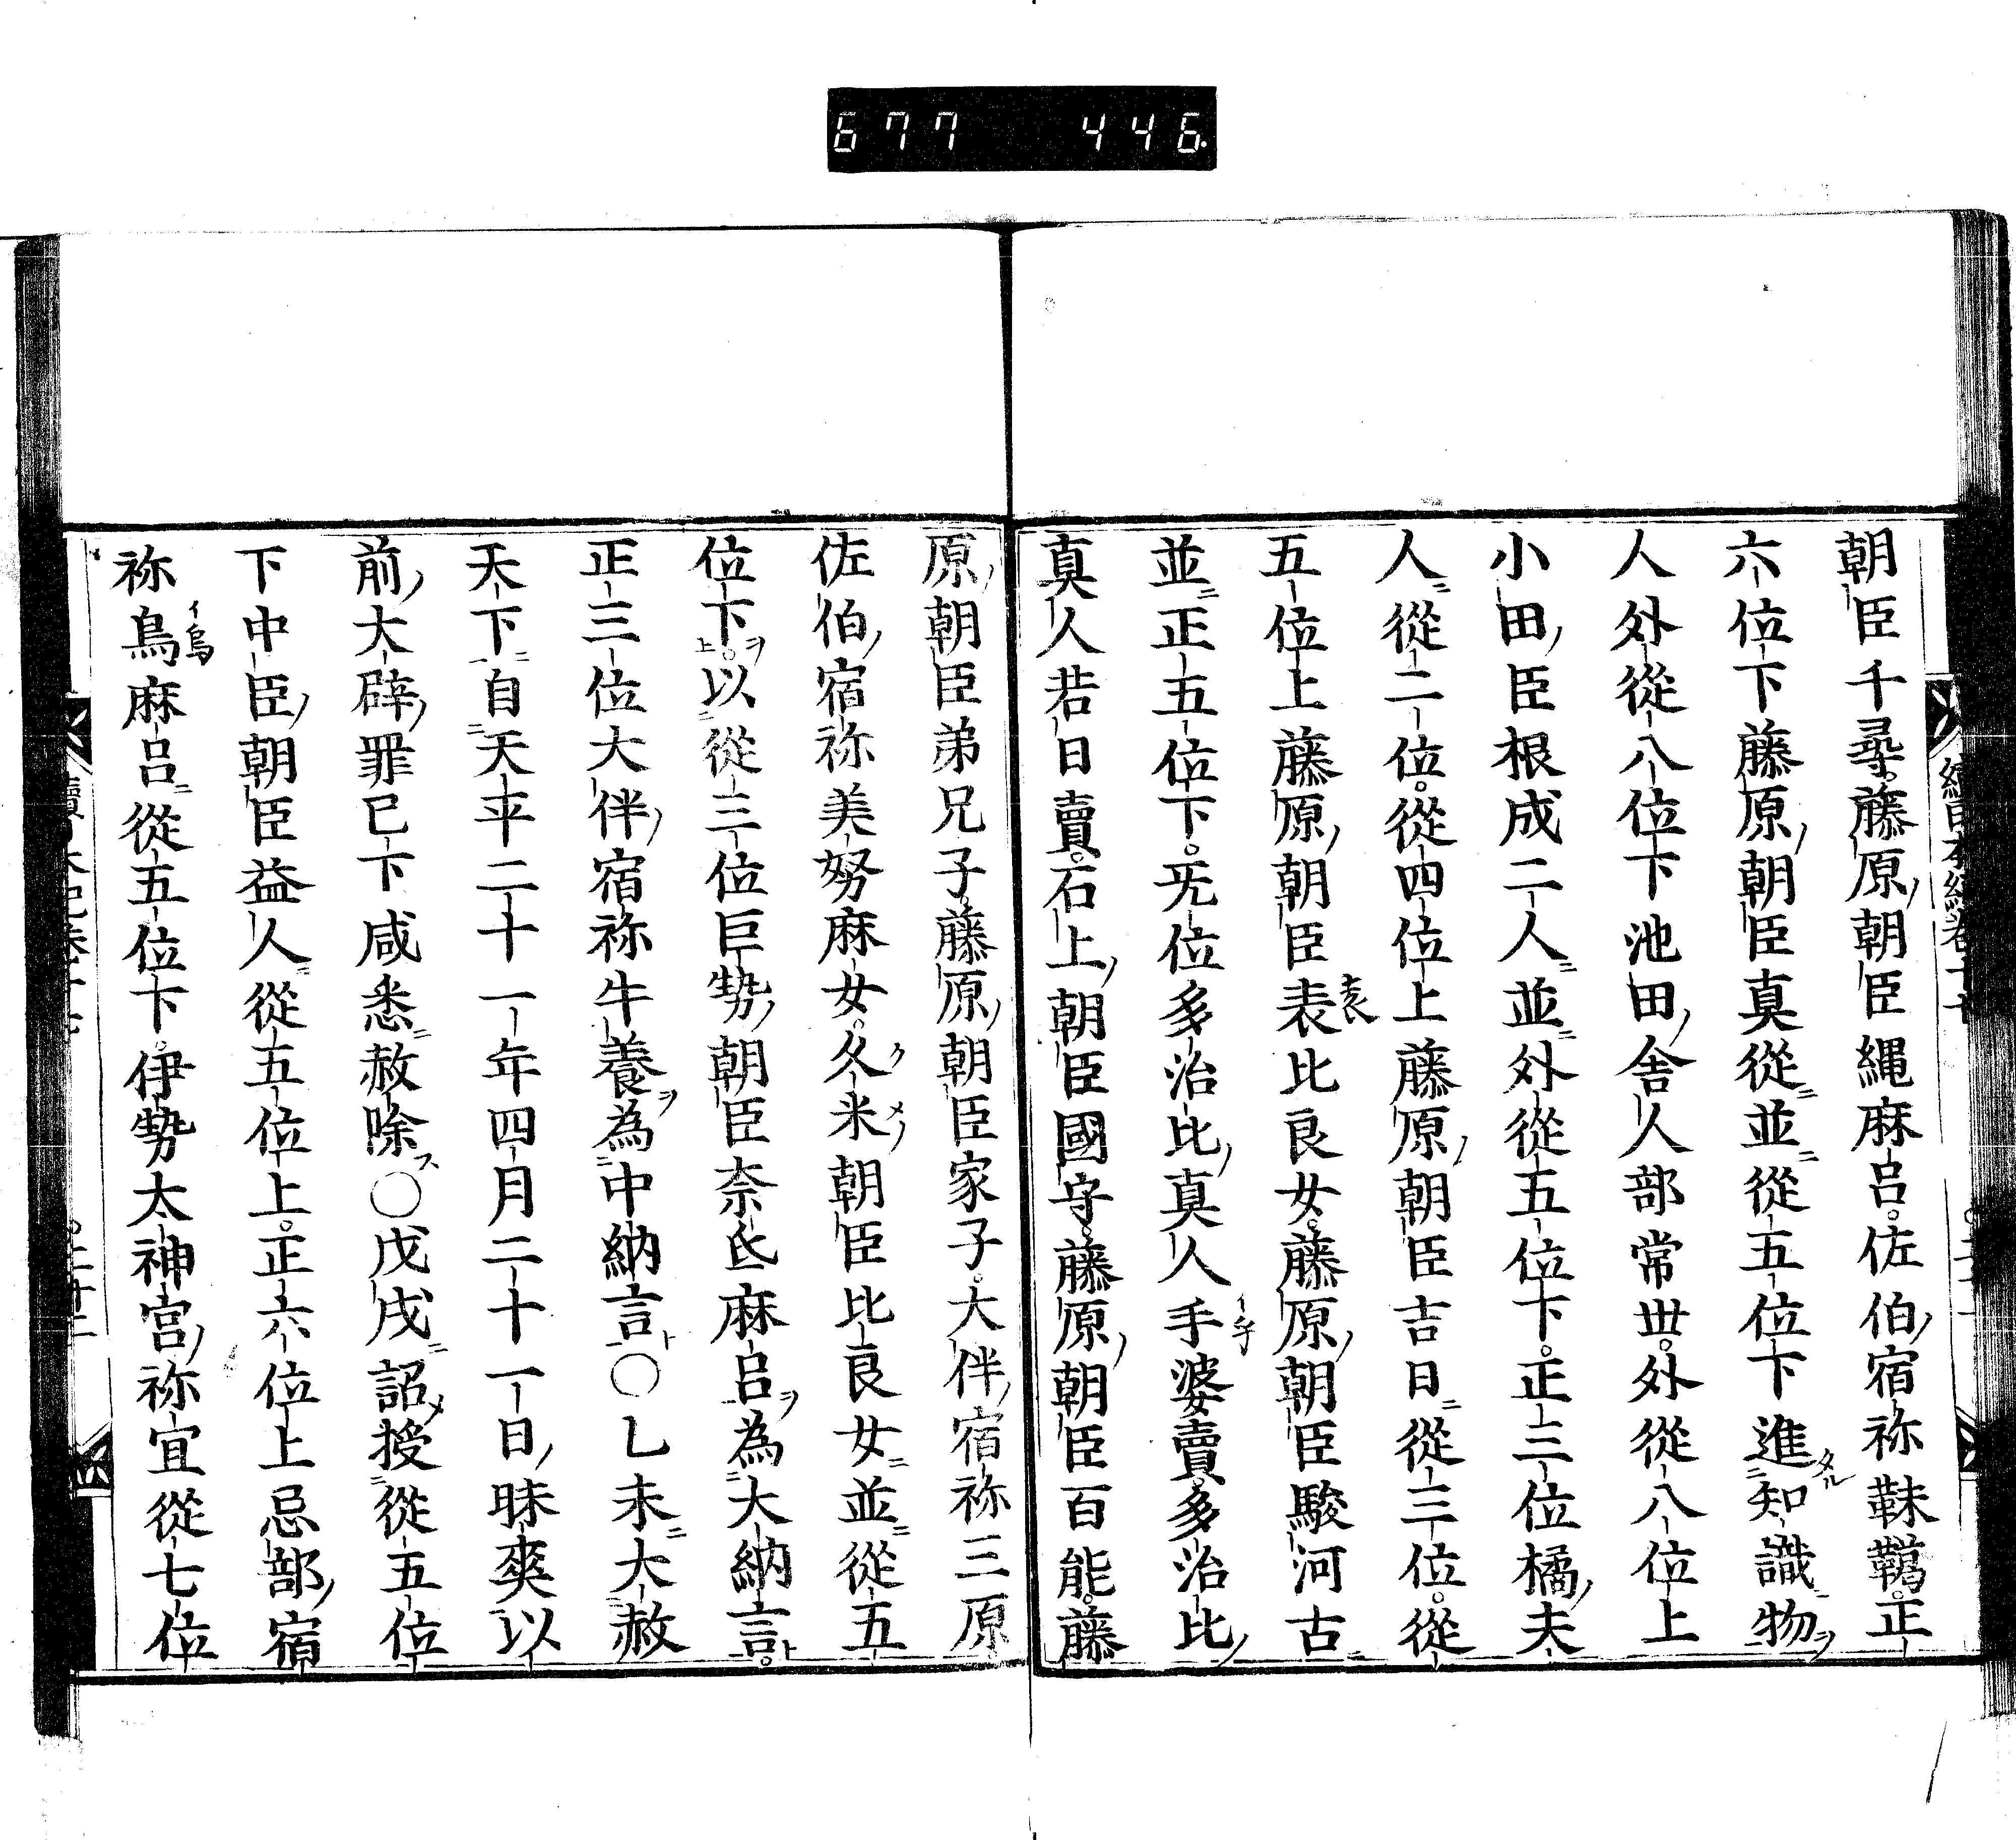 677 446.
朝臣千尋。藤原朝臣縄麻呂。佐伯宿祢靺鞨。正
六位下藤原朝臣真從並從五位下進知識物
人外從八位下池田舎人部常丗。外從八位上
小田臣根成二人並外從五位下。正三位橘夫
人從二位。從四位上藤原朝臣吉日從三位。從
五位上藤原朝臣表比良女。藤原朝臣駿河古
並正五位下。无位多治比真人手婆賣。多治比
真人若日賣。石上朝臣國守。藤原朝臣百能。藤
原朝臣弟兄子。藤原朝臣家子。大伴宿祢三原。
佐伯宿祢美努麻女。久米朝臣比良女並從五
位下。以從三位巨勢朝臣奈氐麻呂為大納言。
正三位大伴宿祢牛養為中納言〇乙未大赦
天下自天平二十一年四月二十一日昧爽以
前大辟罪已下咸悉赦除〇戊戌詔授從五位
下中臣朝臣益人從五位上。正六位上忌部宿
祢鳥麻呂從五位下。伊勢太神宮祢宜從七位